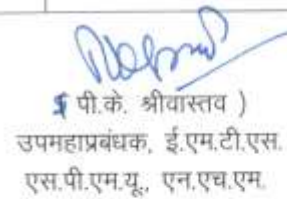 ( पी.के. श्रीवास्तव )
उपमहाप्रबंधक, ई.एम.टी.एस.
एस.पी.एम.यू., एन.एच.एम.